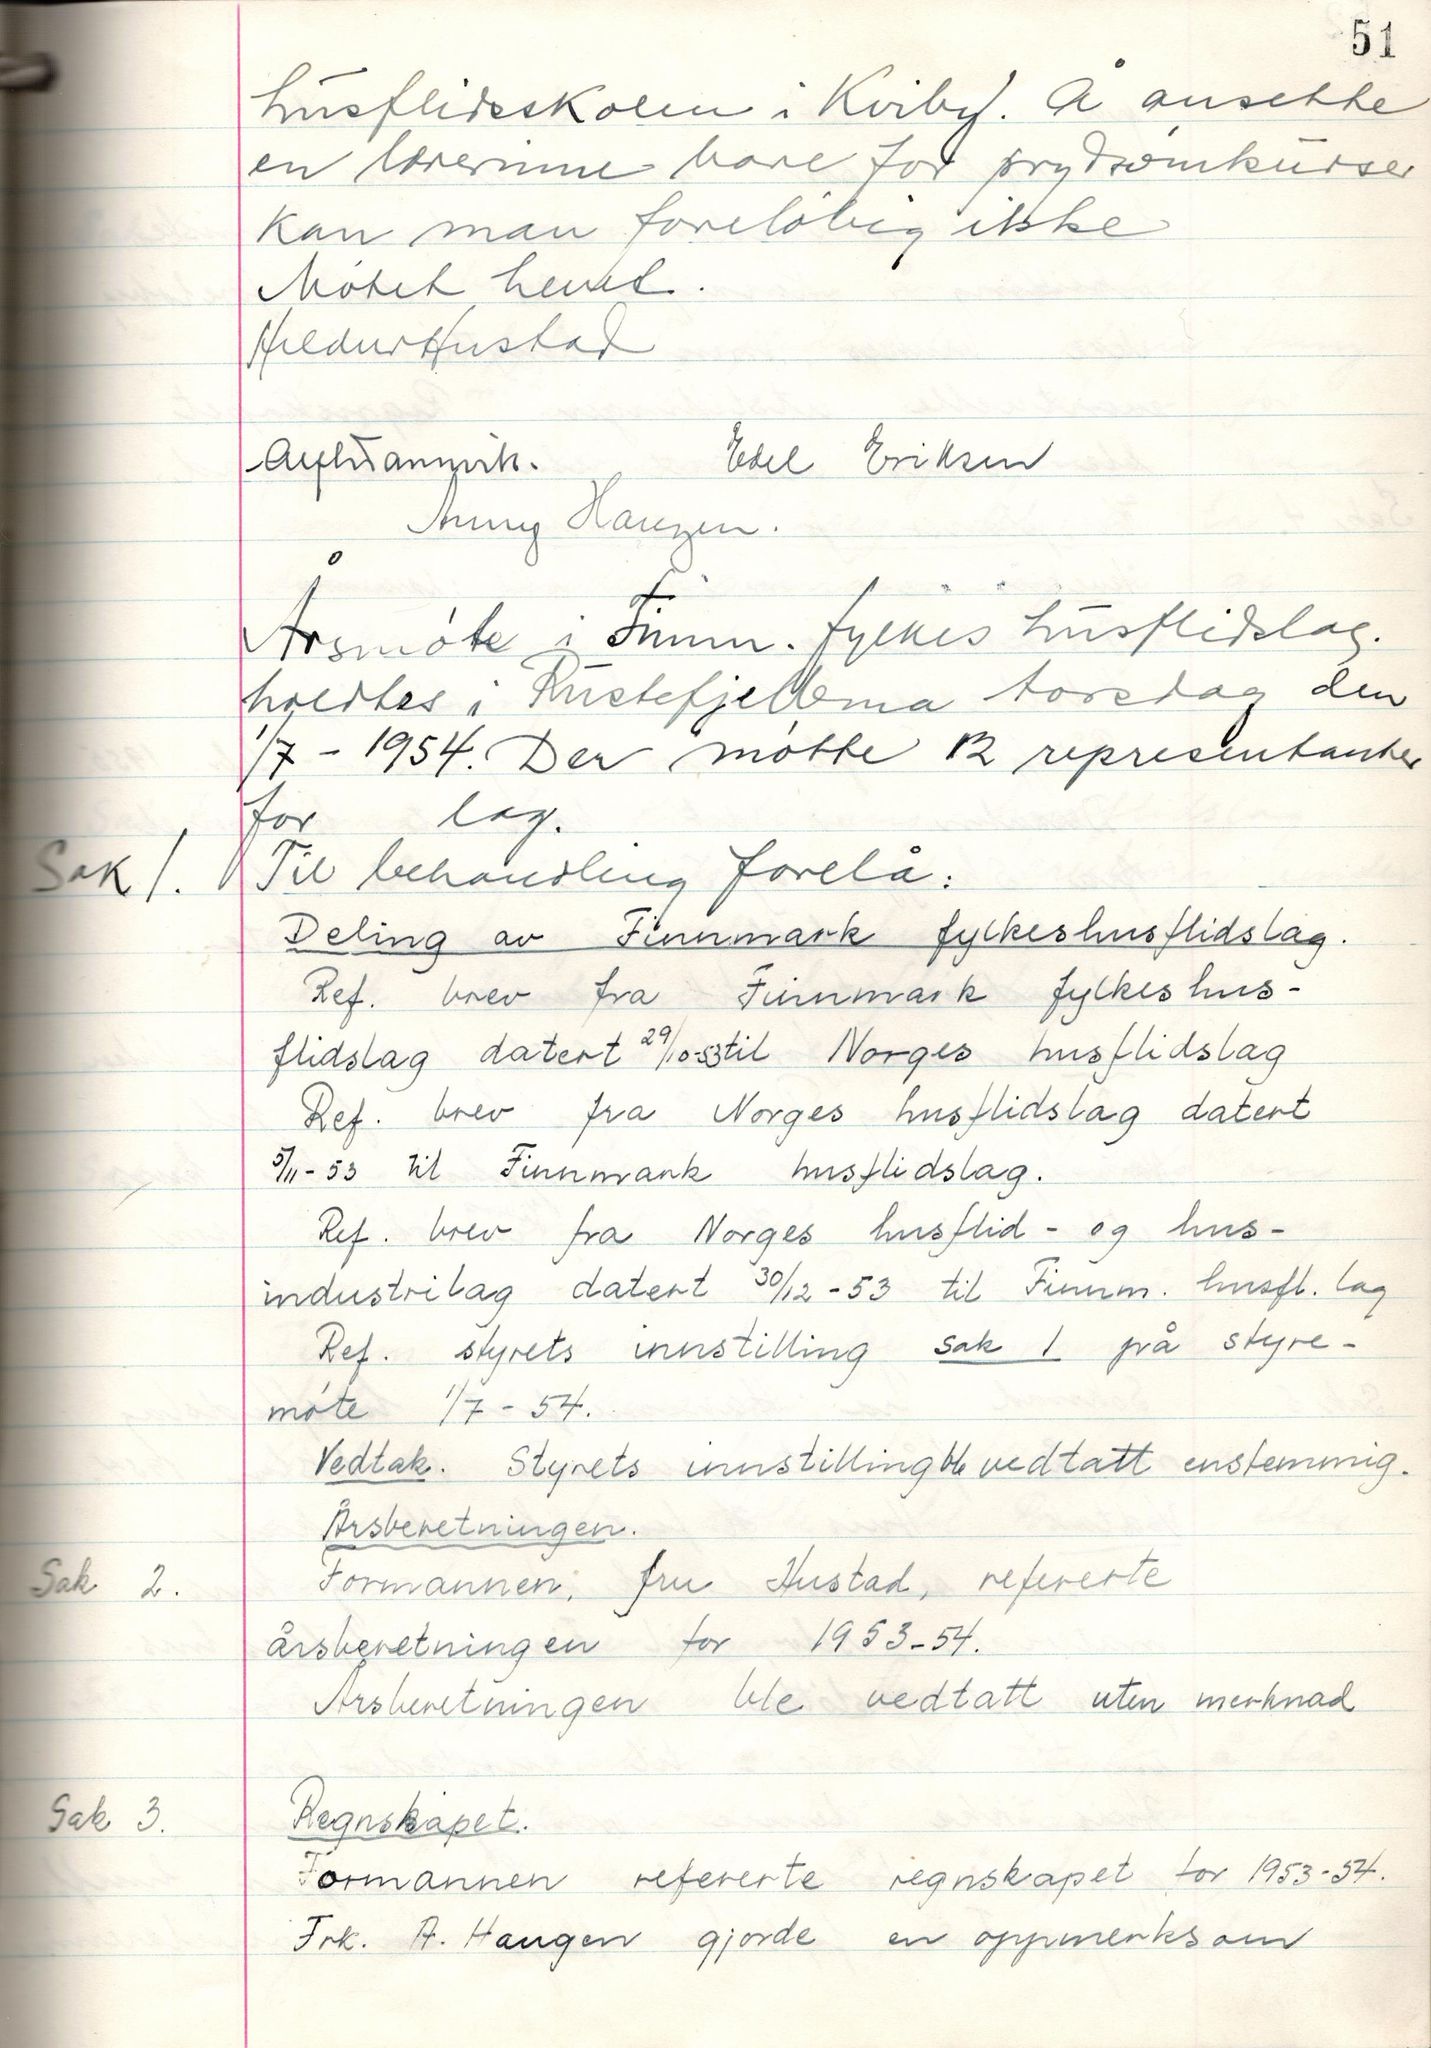 51
husflidsskolen i Kviby. Å ansette
en lærerinne bare for prydsømkurser
kan man foreløbig ikke
Møtet hevet.
Hildur Hustad
Edel Eriksen
Anny Haugen.
Årsmøte i Finnm. fylkes husflidslag.
holdtes i Rustefjelbma torsdag den
1/7 - 1954. Der møtte 12 representanter
for lag.
Sak 1. Til behandling forelå:
Deling av Finnmark fylkeshusflidslag.
Ref. brev fra Finnmark fylkeshus-
flidslag datert 29/10-53 til Norges husflidslag
Ref. brev fra Norges husflidslag datert
5/11-53 til Finnmark husflidslag.
Ref. brev fra Norges husflid- og hus-
industrilag datert 30/12-53 til Finnm. husfl. lag
Ref. styrets innstilling sak 1 på styre-
møte 1/7 - 54.
Vedtak. Styrets innstilling ble vedtatt enstemmig.
Årsberetningen.
Sak 2. Formannen, fru Hustad, refererte
årsberetningen for 1953-54.
Årsberetningen ble vedtatt uten merknad
Sak 3. Regnskapet.
Formannen refererte regnskapet for 1953-54.
Frk. A. Haugen gjorde en oppmerksom